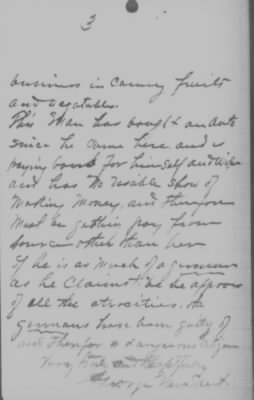 3
business in canning fruits
and vegatables.
This Man has bought an auto
since he came here and is
paying board for himself and Wife
and has No visible show of
Making Money, and therefore
Must be getting pay from
source other than here
if he is as Much of a german
as he Claims to be he approves
of all the atrocities the
germans have been guilty of
and therefor a dangerous citizen
Very Truly and Respectfully
George